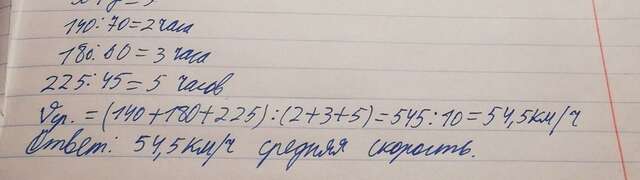 140:70=2 часа
180:60=3 часа
225:45=5 часов
Vср. =(140+180+225):(2+3+5)=545:10=54,5км/ч
Ответ: 54,5км/ч средняя скорость.